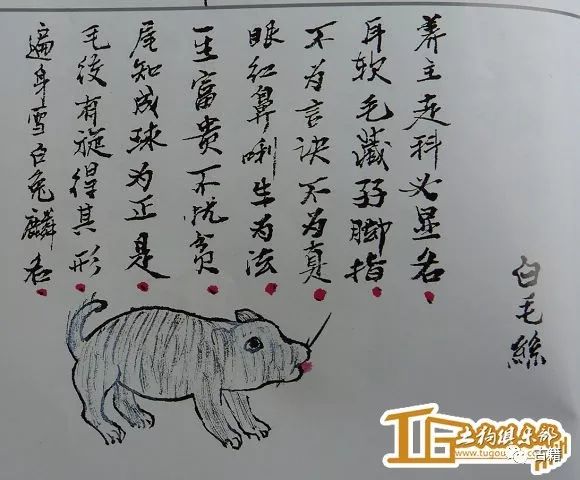 白毛絲
养主走科必显名
耳软毛藏孖脚指
不为言诀不为真
眼红鼻唎生为法
一生富贵不忧贫
尾知成球为正是
毛後有旋得其形
遍身雪白兔麟名
TG 土狗俱乐部
www.tugou
古籍